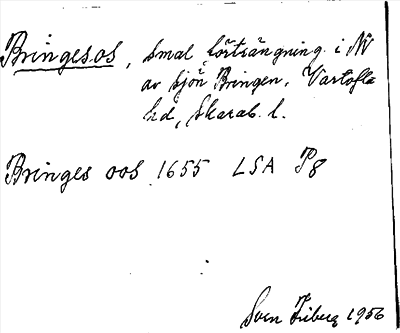 Bringesos, smal förträngning i NV
av sjön Bringen, Vartofta
hd, Skarab. l.
Bringes oos 1655 LSA P8
Sven Friberg 1956